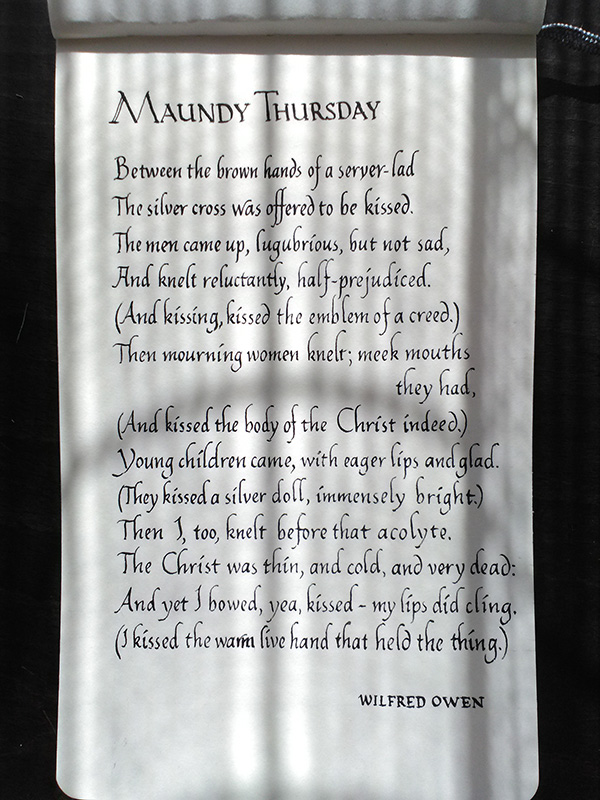 MAUNDY THURSDAY
Between the brown hands of a server-lad
The silver cross was offered to be kissed.
The men came up, lugubrious, but not sad,
And knelt reluctantly, half-prejudiced.
(And kissing, kissed the emblem of a creed.)
Then mourning women knelt; meek mouths
they had,
(And kissed the body of the Christ indeed.)
Young children came, with eager lips and glad.
(They kissed a silver doll, immensely bright.)
Then I, too, knelt before that acolyte.
The Christ was thin, and cold, and very dead:
And yet I bowed, yea, kissed - my lips did cling.
(I kissed the warm live hand that held the thing.)
WILFRED OWEN